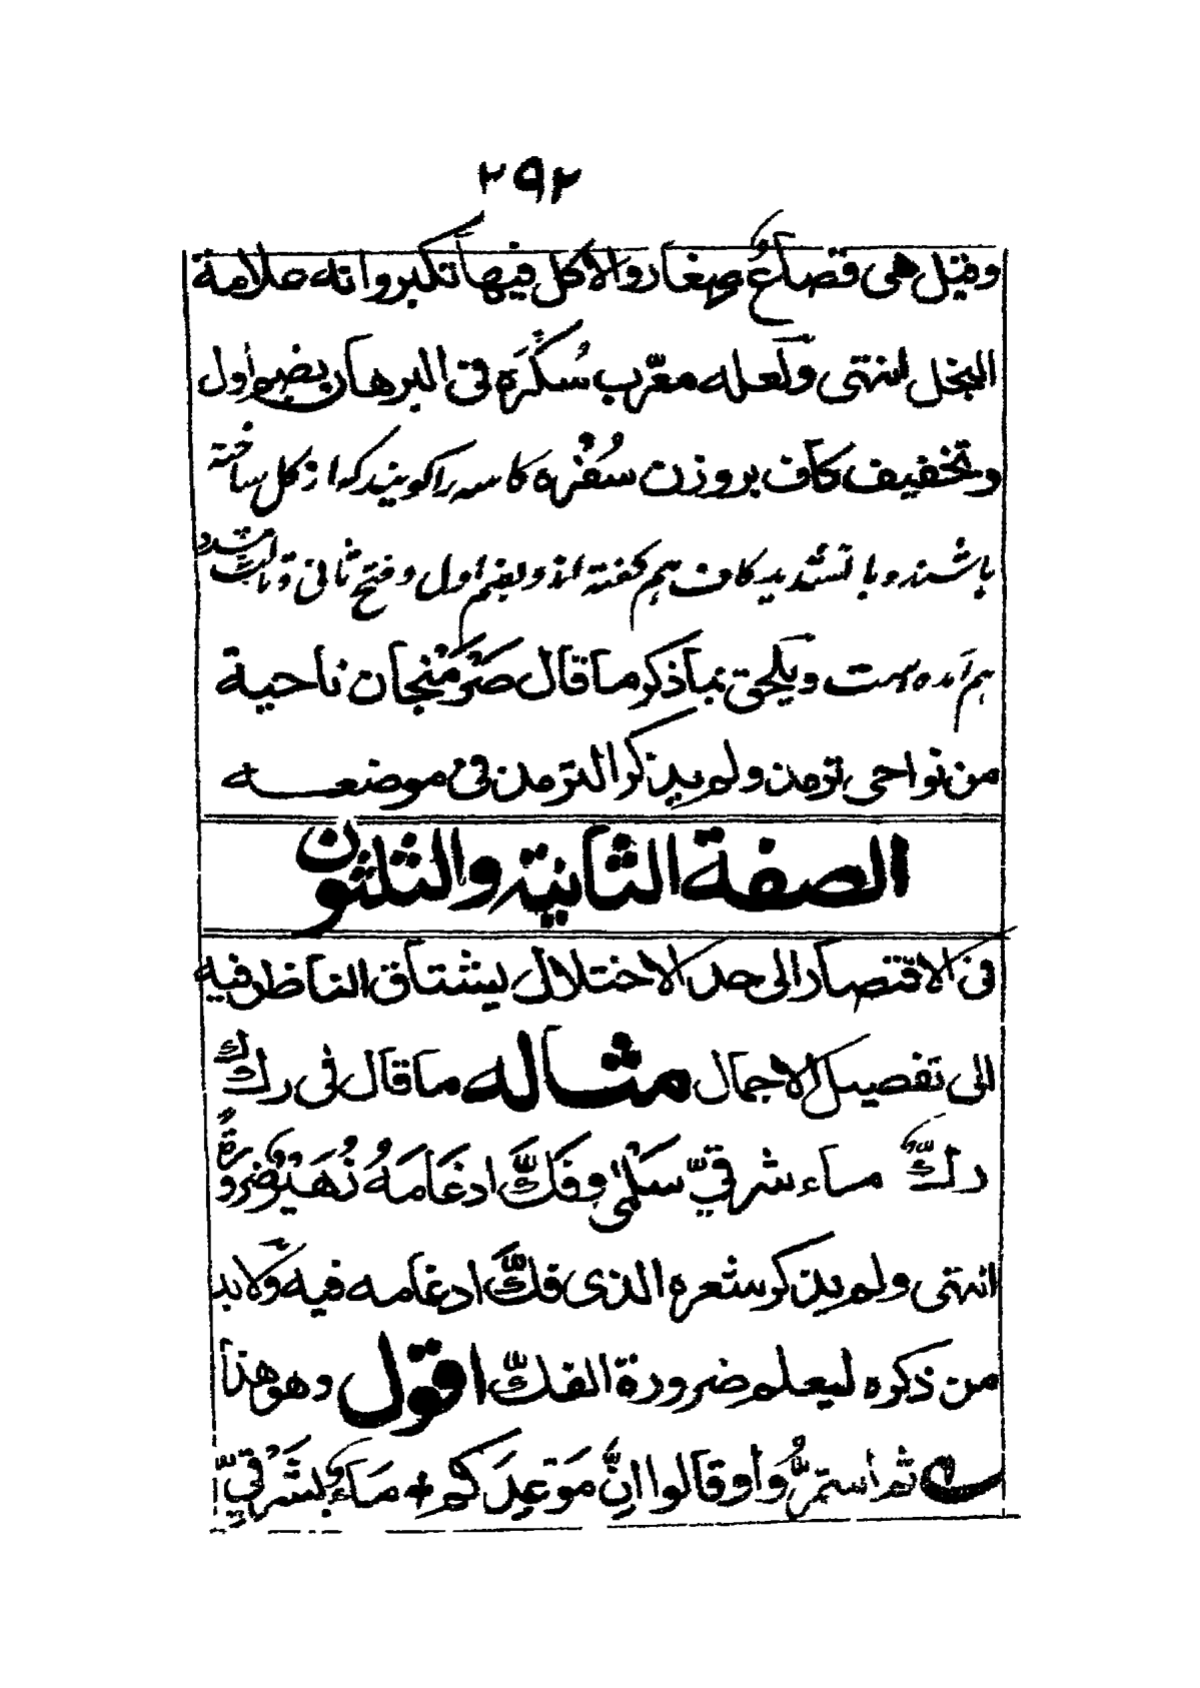 ٢٩٢
وقيل هى قصاعٌ صغار والاكل فيها تكبر وانه علامة
البخل انتهى ولَعله معرّب سُكُرَّه فى البرهان بضم اول
وتخفيف كاف بر وزن سُفْره كاسه را كويند كه از كل ساخته
باشند وبا تشديد كاف هم كفته اند وبضم اول وفتح ثانى وثالث مشدد
هم آمده است ويَلحق بما ذكر ما قال صَرْمَنْجان ناحية
من نواحى ترمذ ولم يذكر الترمذ فى موضعه
الصفة الثانية والثلثون
فى الاقتصار الى حد الاختلال يشتاق الناظر فيه
الى تفصيل الاجمال مثاله ما قال فى ركك
ركٌّ ماء شرقىّ سَلْمٰى وفَكَّ ادغامَهُ زُهَيْرٌ ضرورةً
انتهى ولم يذكر شعره الذى فكَّ ادغامه فيه ولَابد
من ذكره ليعلم ضرورة الفكّ اقول وهو هذا
ثم استمرُّوا وقالوا انّ مَوْعِدَكم + مَاءٌ بشَرْقِىِّ